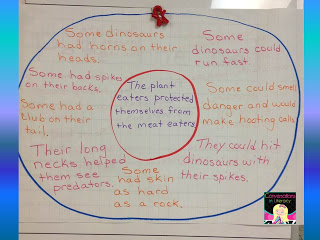 Some dinosaurs
had horns on their
heads.
Some
dinosaurs could
run fast.
Some had spikes
on their backs.
The plant
eaters protected
themselves from
the meat eaters
Some could smell
danger and would
make hooting calls.
Some had a
club on their
tail.
Their long
necks helped
them see
predators.
Some
had skin
as hard
as a rock.
They could hit
dinosaurs with
their spikes.
Conversations
in Literacy